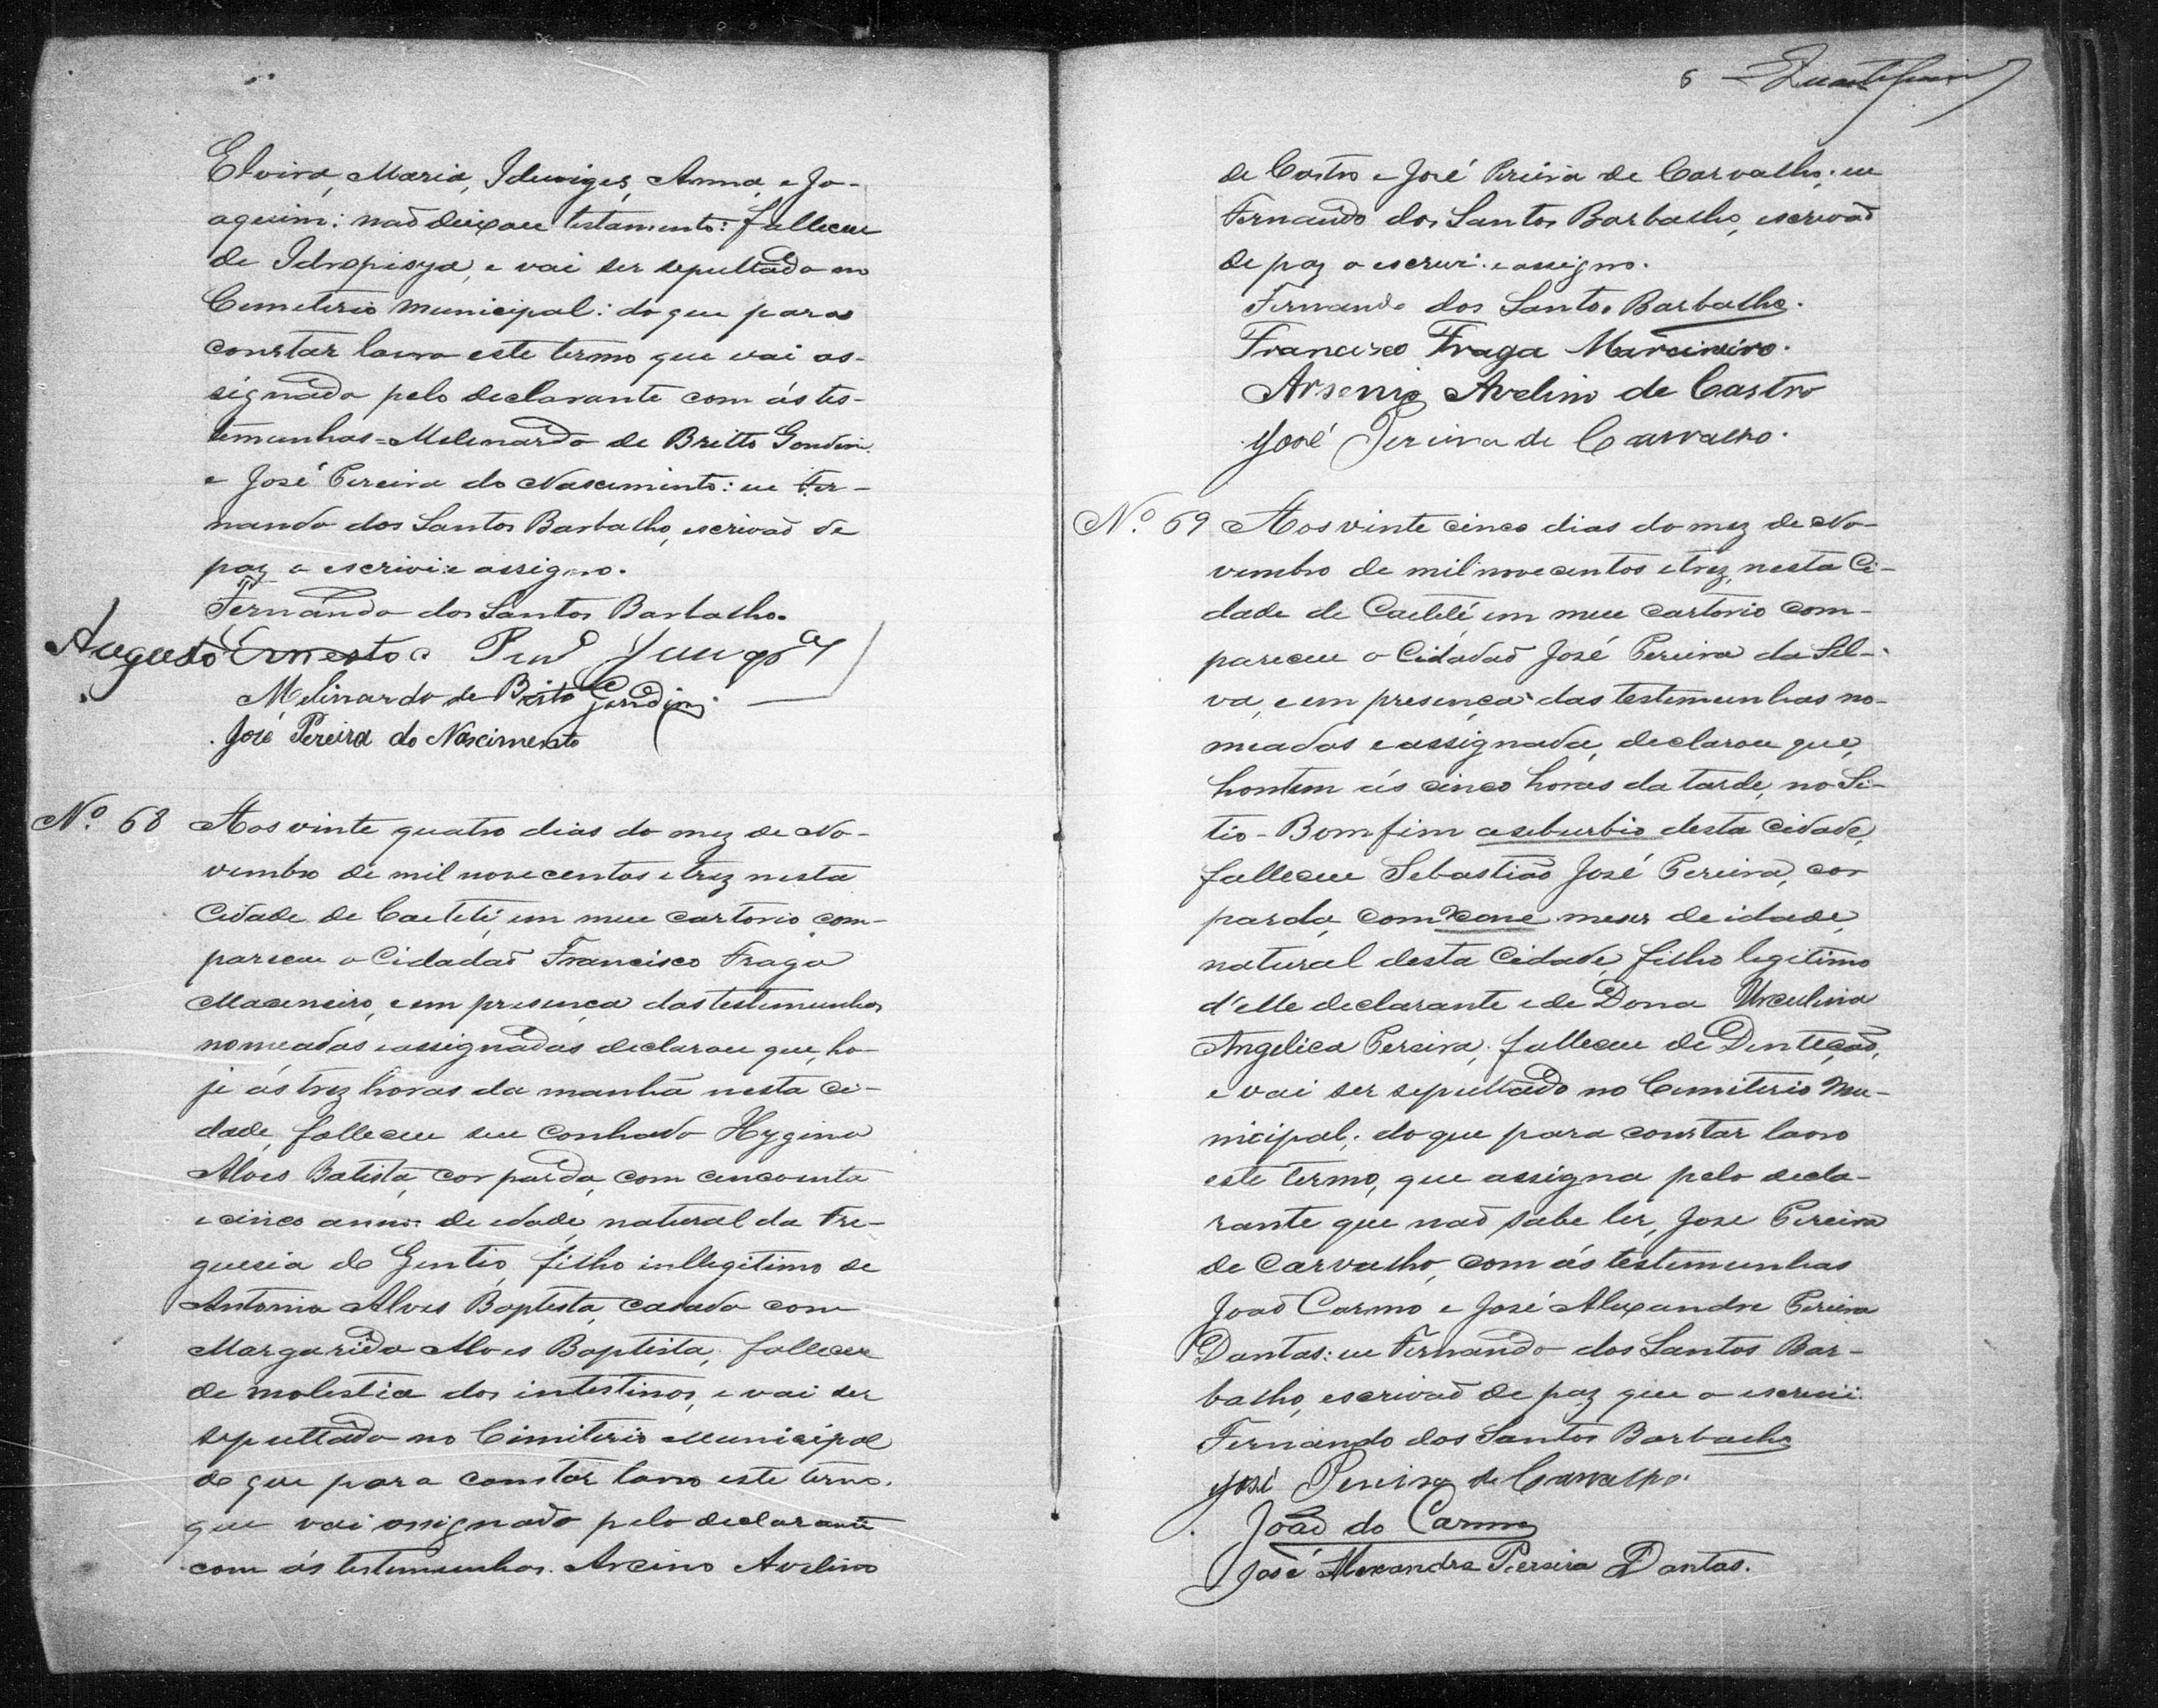 Elvira, Maria, Iduviges, Anna, e Jo-
aquim: naõ deixou testamento: falleceu
de Idropisya, e vai ser sepultado no
Cemeterio Municipal: do que para
constar lavro este termo que vai as-
signado pelo declarante com ás tes-
temunhas = Melenardo de Britto Gondim
e José Pereira do Nascimento: eu Fer-
nando dos Santos Barbalho, escrivaõ de
paz o escrivi e assigno.
Fernando dos Santos Barbalho.
Augusto Ernesto
Melinardo de Brito Gondim
José Pereira do Nascimento
Nº. 68 Aos vinte quatro dias do mez de No-
vembro de mil novecentos e trez nesta
Cidade de Caeteté, em meu cartorio com-
pareceu o Cidadaõ Francisco Fraga
Maceneiro, e em presença das testemunhas
nomeadas e assignadas declarou que, ho-
je ás trez horas da manhã nesta ci-
dade, falleceu seu Conhado Hygino
Alves Batista, cor parda, com cencoenta
e cinco annos de edade, natural da Fre-
guesia do Gentio, filho inllegitimo de
Antonia Alves Baptista, casado com
Margarida Alves Baptista, falleceu
de molestia dos intestinos, e vai ser
sepultado no Cimiterio Municipal
do que para constar lavro este termo.
que vai assignado pelo declarante
com ás testemunhas. Arcino Avelino
5
de Castro e José Pereira de Carvalho; eu
Fernando dos Santos Barbalho, escrivaõ
de paz o escrivi e assigno.
Fernando dos Santos Barbalho.
Francisco Fraga Marcineiro.
Arsenio Avelino de Castro
José Pereira de Carvalho.
Nº. 69 Aos vinte cinco dias do mez de No-
vembro de mil novecentos e trez, nesta Ci-
dade de Caeteté em meu cartorio com-
pareceu o Cidadaõ José Pereira da Sil-
va, e em presença das testemunhas no-
meadas e assignada, declarou que,
hontem ás cinco horas da tarde, no Si-
tio - Bomfim aseburbio desta Cidade,
falleceu Sebastiaõ José Pereira, cor
parda, com meses de idade,
natural desta Cidade, filho legitimo
d'elle declarante e de Dona Urculina
Angelica Pereira; falleceu de Dinteçaõ,
e vai ser sepultado no Cemiterio Mu-
nicipal; do que para constar lavro
este termo, que assigna pelo decla-
rante que naõ sabe ler, Jose Pereira
de Carvalho, com ás testemunhas
Joaõ Carmo e José Alexandre Pereira
Dantas: eu Fernando dos Santos Bar-
balho, escrivaõ de paz que o escrevi.
Fernando dos Santos Barbalho
José Pereira de Carvalho.
Joaõ do Carmo
José Alexandre Pereira Dantas.